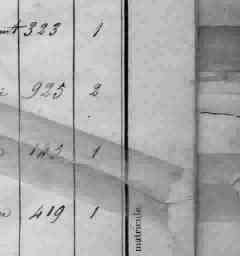 323 1
925 2
143 1
419 1
matricule